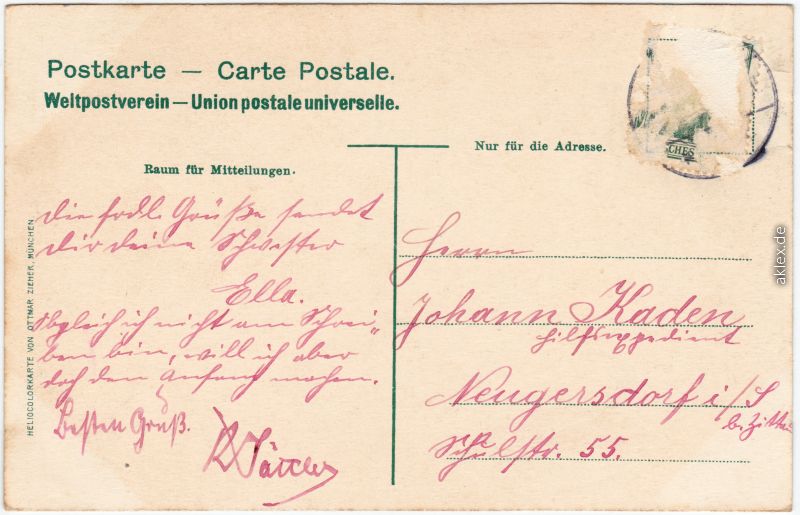 Postkarte — Carte Postale.
Weltpostverein — Union postale universelle.
CHES
Nur für die Adresse.
Raum für Mitteilungen.
HELIOCOLORKARTE VON OTTMAR ZIEHER, MÜNCHEN
Die frdl. Grüße sendet
Dir deine Schwester
Ella.
Obgleich ich nicht am Schrei-
ben bin, will ich aber
doch den Anfang machen.
Besten Gruß.
Herrn
Johann Kaden
Hilfsexpedient
Neugersdorf i/S
b. Zittau
Schulstr. 55.
aklex.de